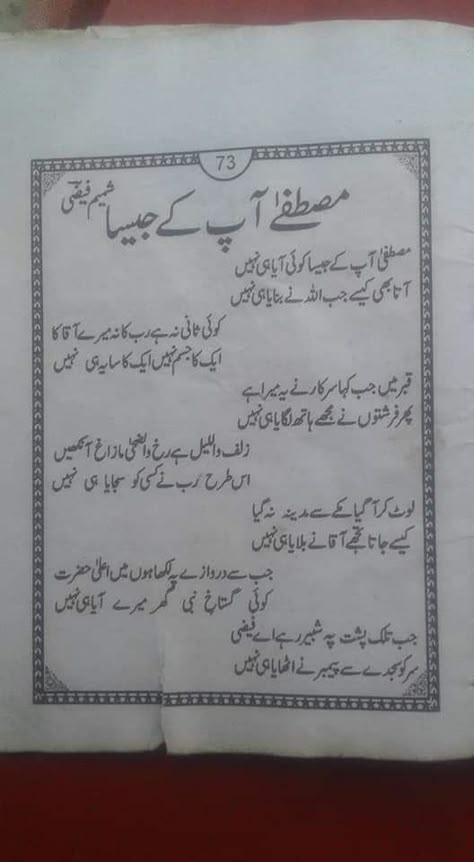 73
مصطفےٰ آپ کے جیسا
شمیم فیضی
مصطفیٰ آپ کے جیسا کوئی آیا ہی نہیں
آتا بھی کیسے جب اللہ نے بنایا ہی نہیں
کوئی ثانی نہ ہے رب کا نہ میرے آقا کا
ایک کا جسم نہیں ایک کا سایہ ہی نہیں
قبر میں جب کہا سرکار نے یہ میرا ہے
پھر فرشتوں نے مجھے ہاتھ لگایا ہی نہیں
زلف واللیل ہے رخ والضحیٰ مازاغ آنکھیں
اس طرح رب نے کسی کو سجایا ہی نہیں
لوٹ کر آ گیا مکے سے مدینہ نہ گیا
کیسے جاتا تجھے آقا نے بلایا ہی نہیں
جب سے دروازے پہ لکھا ہوں میں اعلیٰ حضرت
کوئی گستاخ نبی گھر میرے آیا ہی نہیں
جب تلک پشت پہ شبیر رہے اے فیضی
سر کو سجدے سے پیمبر نے اٹھایا ہی نہیں